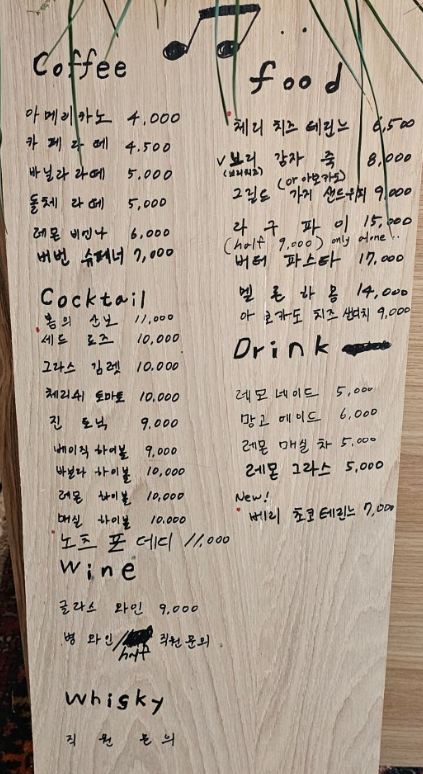 Coffee
아메리카노 4,000
카페라떼 4.500
바닐라 라떼 5,000
돌체 라떼 5,000
레몬 비엔나 6,000
버번 슈페너 7,000
Cocktail
봄의 산보 11,000
세드 로즈 10,000
그라스 김렛 10.000
체리쉬 토마토 10,000
진 토닉 9,000
베이직 하이볼 9,000
바닐라 하이볼 10,000
레몬 하이볼 10,000
매실 하이볼 10.000
노즈 포 데디 11,000
Wine
글라스 와인 9,000
병 와인 / 직원문의
half
Whisky
직원 문의
food
체리 치즈 테린느 6,500
보리 감자 죽 8,000
(or 아보카도)
그릴드 가지 샌드위치 9,000
라구 파이 15,000
(half 9,000) only alone..
버터 파스타 17,000
멜론하몽 14,000
아보카도 치즈 샌위치 9,000
Drink
레모네이드 5,000
망고에이드 6,000
레몬 매실 차 5,000
레몬 그라스 5,000
New!
베리 초코테린느 7,000